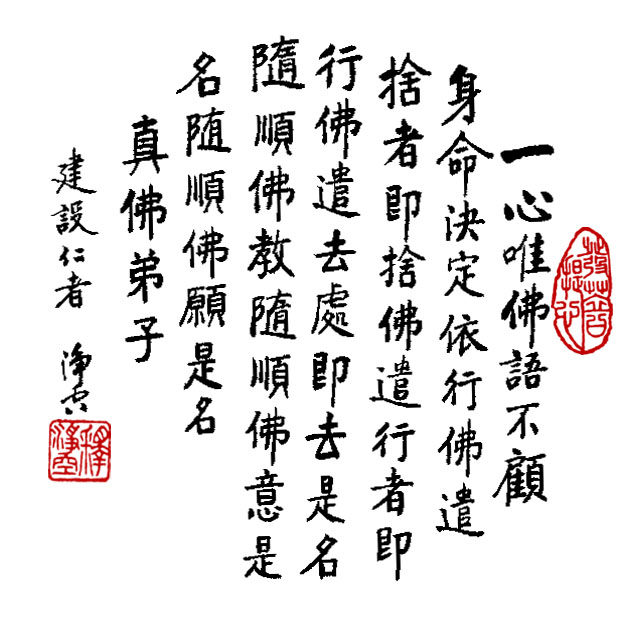 一心唯佛語不顧
身命決定依行佛遣
捨者即捨佛遣行者即
行佛遣去處即去是名
隨順佛教隨順佛意是
名随順佛願是名
真佛弟子
建設仁者 淨空
釋淨空
發菩提心